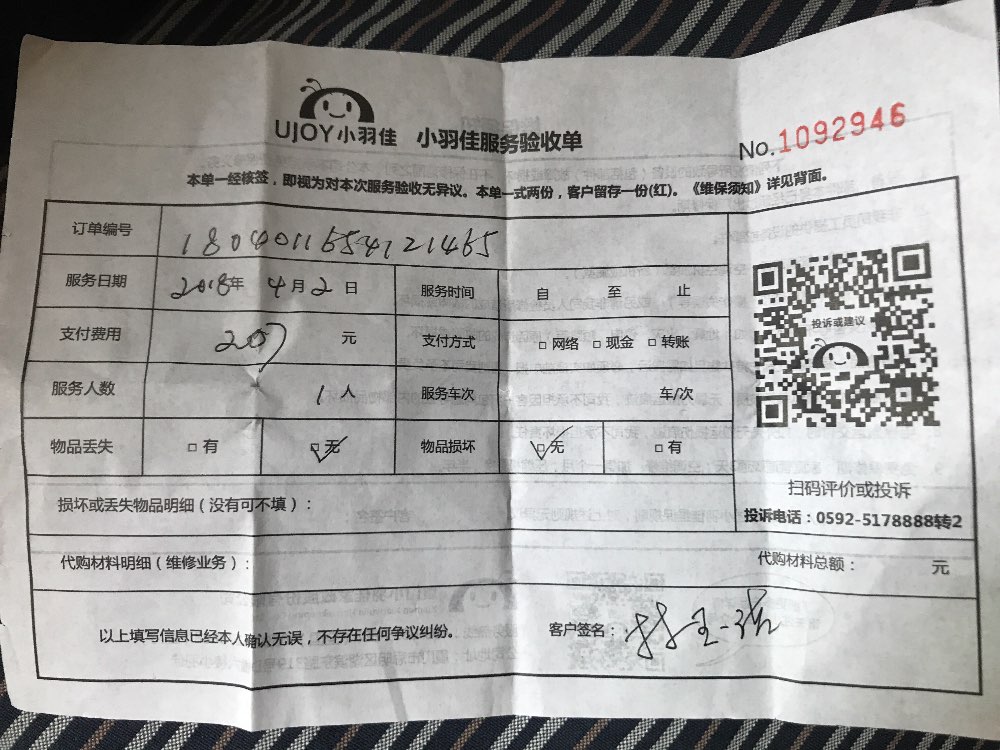 UJOY小羽佳 小羽佳服务验收单
No.1092946
本单一经核签，即视为对本次服务验收无异议。本单一式两份，客户留存一份(红)。《维保须知》详见背面。
订单编号 1804011654121465
服务日期 2018年 4月2日 服务时间 自 至 止
支付费用 207 元 支付方式 □网络 □现金 □转账
服务人数 1人 服务车次 车/次
物品丢失 □有 ☑无 物品损坏 ☑无 □有
投诉或建议
扫码评价或投诉
投诉电话：0592-5178888转2
损坏或丢失物品明细（没有可不填）：
代购材料明细（维修业务）： 代购材料总额： 元
以上填写信息已经本人确认无误，不存在任何争议纠纷。 客户签名：